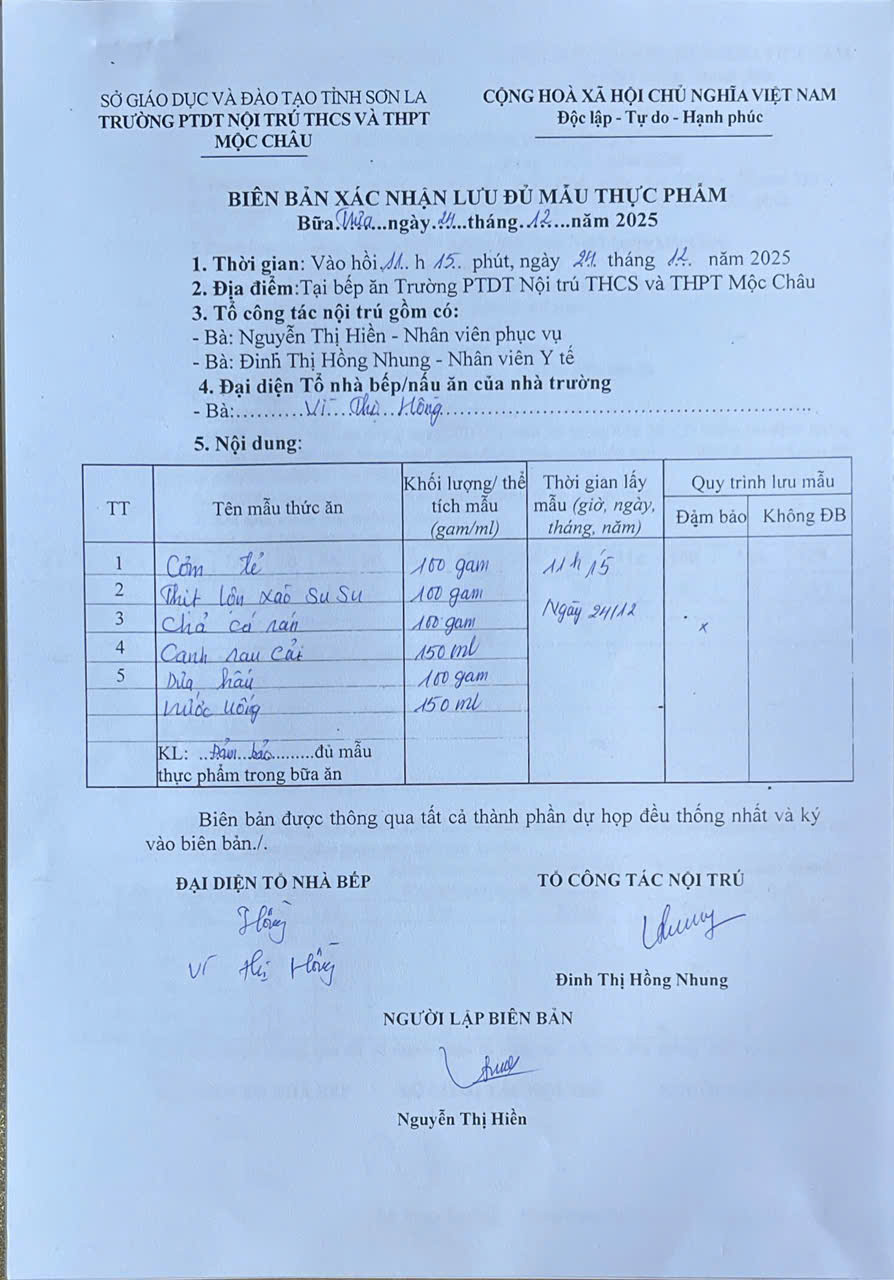 SỞ GIÁO DỤC VÀ ĐÀO TẠO TỈNH SƠN LA
TRƯỜNG PTDT NỘI TRÚ THCS VÀ THPT
MỘC CHÂU
CỘNG HOÀ XÃ HỘI CHỦ NGHĨA VIỆT NAM
Độc lập - Tự do - Hạnh phúc
BIÊN BẢN XÁC NHẬN LƯU ĐỦ MẪU THỰC PHẨM
Bữa.Trưa...ngày.24...tháng.12...năm 2025
1. Thời gian: Vào hồi.11. h 15. phút, ngày 24. tháng 12. năm 2025
2. Địa điểm:Tại bếp ăn Trường PTDT Nội trú THCS và THPT Mộc Châu
3. Tổ công tác nội trú gồm có:
- Bà: Nguyễn Thị Hiền - Nhân viên phục vụ
- Bà: Đinh Thị Hồng Nhung - Nhân viên Y tế
4. Đại diện Tổ nhà bếp/nấu ăn của nhà trường
- Bà:..........Vì...Thị...Hồng..........
5. Nội dung:
TT
Tên mẫu thức ăn
Khối lượng/ thể tích mẫu (gam/ml)
Thời gian lấy mẫu (giờ, ngày, tháng, năm)
Quy trình lưu mẫu
Đảm bảo
Không ĐB
1 Cơm tẻ 100 gam 11h 15
2 Thịt lợn xào su su 100 gam
Ngày 24/12
3 Chả cá rán 100 gam x
4 Canh rau cải 150 ml
5 Dưa hấu 100 gam
nước uống 150 ml
KL: ..Đảm..bảo.........đủ mẫu
thực phẩm trong bữa ăn
Biên bản được thông qua tất cả thành phần dự họp đều thống nhất và ký
vào biên bản./.
ĐẠI DIỆN TỔ NHÀ BẾP
Hồng
Vì Thị Hồng
TỔ CÔNG TÁC NỘI TRÚ
Nhung
Đinh Thị Hồng Nhung
NGƯỜI LẬP BIÊN BẢN
Nguyễn Thị Hiền